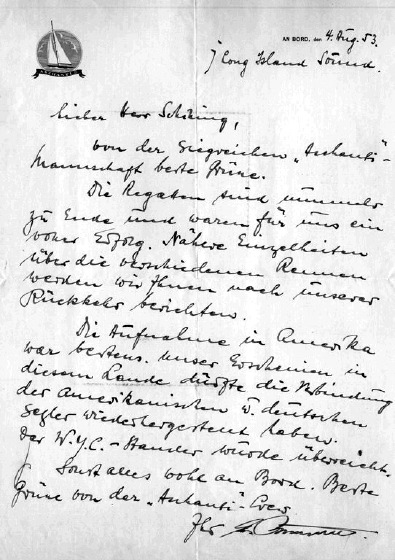 AN BORD, den 4. Aug. 53.
Long Island Sound.
Lieber Herr Schöning,
von der siegreichen „Ashanti"-
Mannschaft beste Grüße.
Die Regatten sind nunmehr
zu Ende und waren für uns ein
voller Erfolg. Nähere Einzelheiten
über die verschiedenen Rennen
werden wir Ihnen nach unserer
Rückkehr berichten.
Die Aufnahme in Amerika
war bestens. Unser Erscheinen in
diesem Lande dürfte die Verbindung
der Amerikanischen u. deutschen
Segler wiederhergestellt haben.
Der W.Y.C.-Stander wurde überreicht.
Sonst alles wohl an Bord. Beste
Grüße von der „Ashanti"-Crew.
Ihr